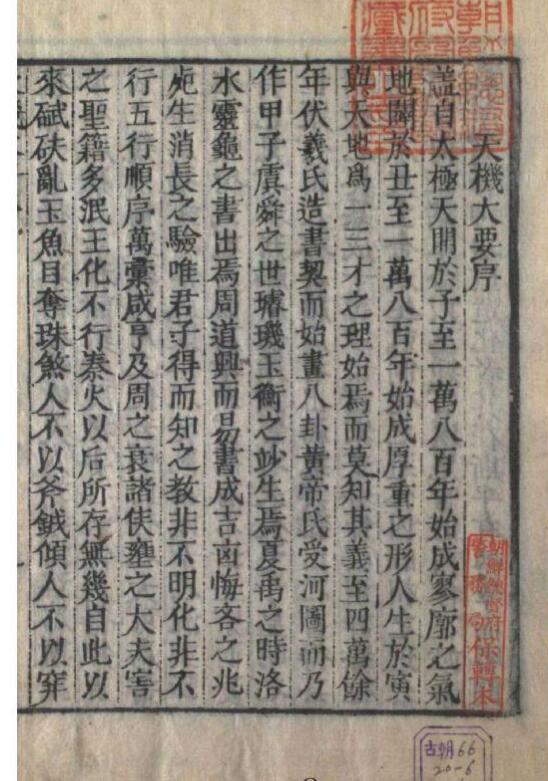 天機大要序
盖自太極天開於子至一萬八百年始成寥廓之氣
地闢於丑至一萬八百年始成厚重之形人生於寅
與天地爲一三才之理始焉而莫知其義至四萬餘
年伏羲氏造書契而始畫八卦黃帝氏受河圖而乃
作甲子虞舜之世璿璣玉衡之妙生焉夏禹之時洛
水靈龜之書出焉周道興而易書成吉凶悔吝之兆
死生消長之驗唯君子得而知之敎非不明化非不
行五行順序萬彙咸亨及周之衰諸侯壅之大夫害
之聖籍多泯王化不行秦火以后所存無幾自此以
來碔砆亂玉魚目奪珠煞人不以斧鉞傾人不以穽
朝鮮總督府
保轉本
古朝66
20-6